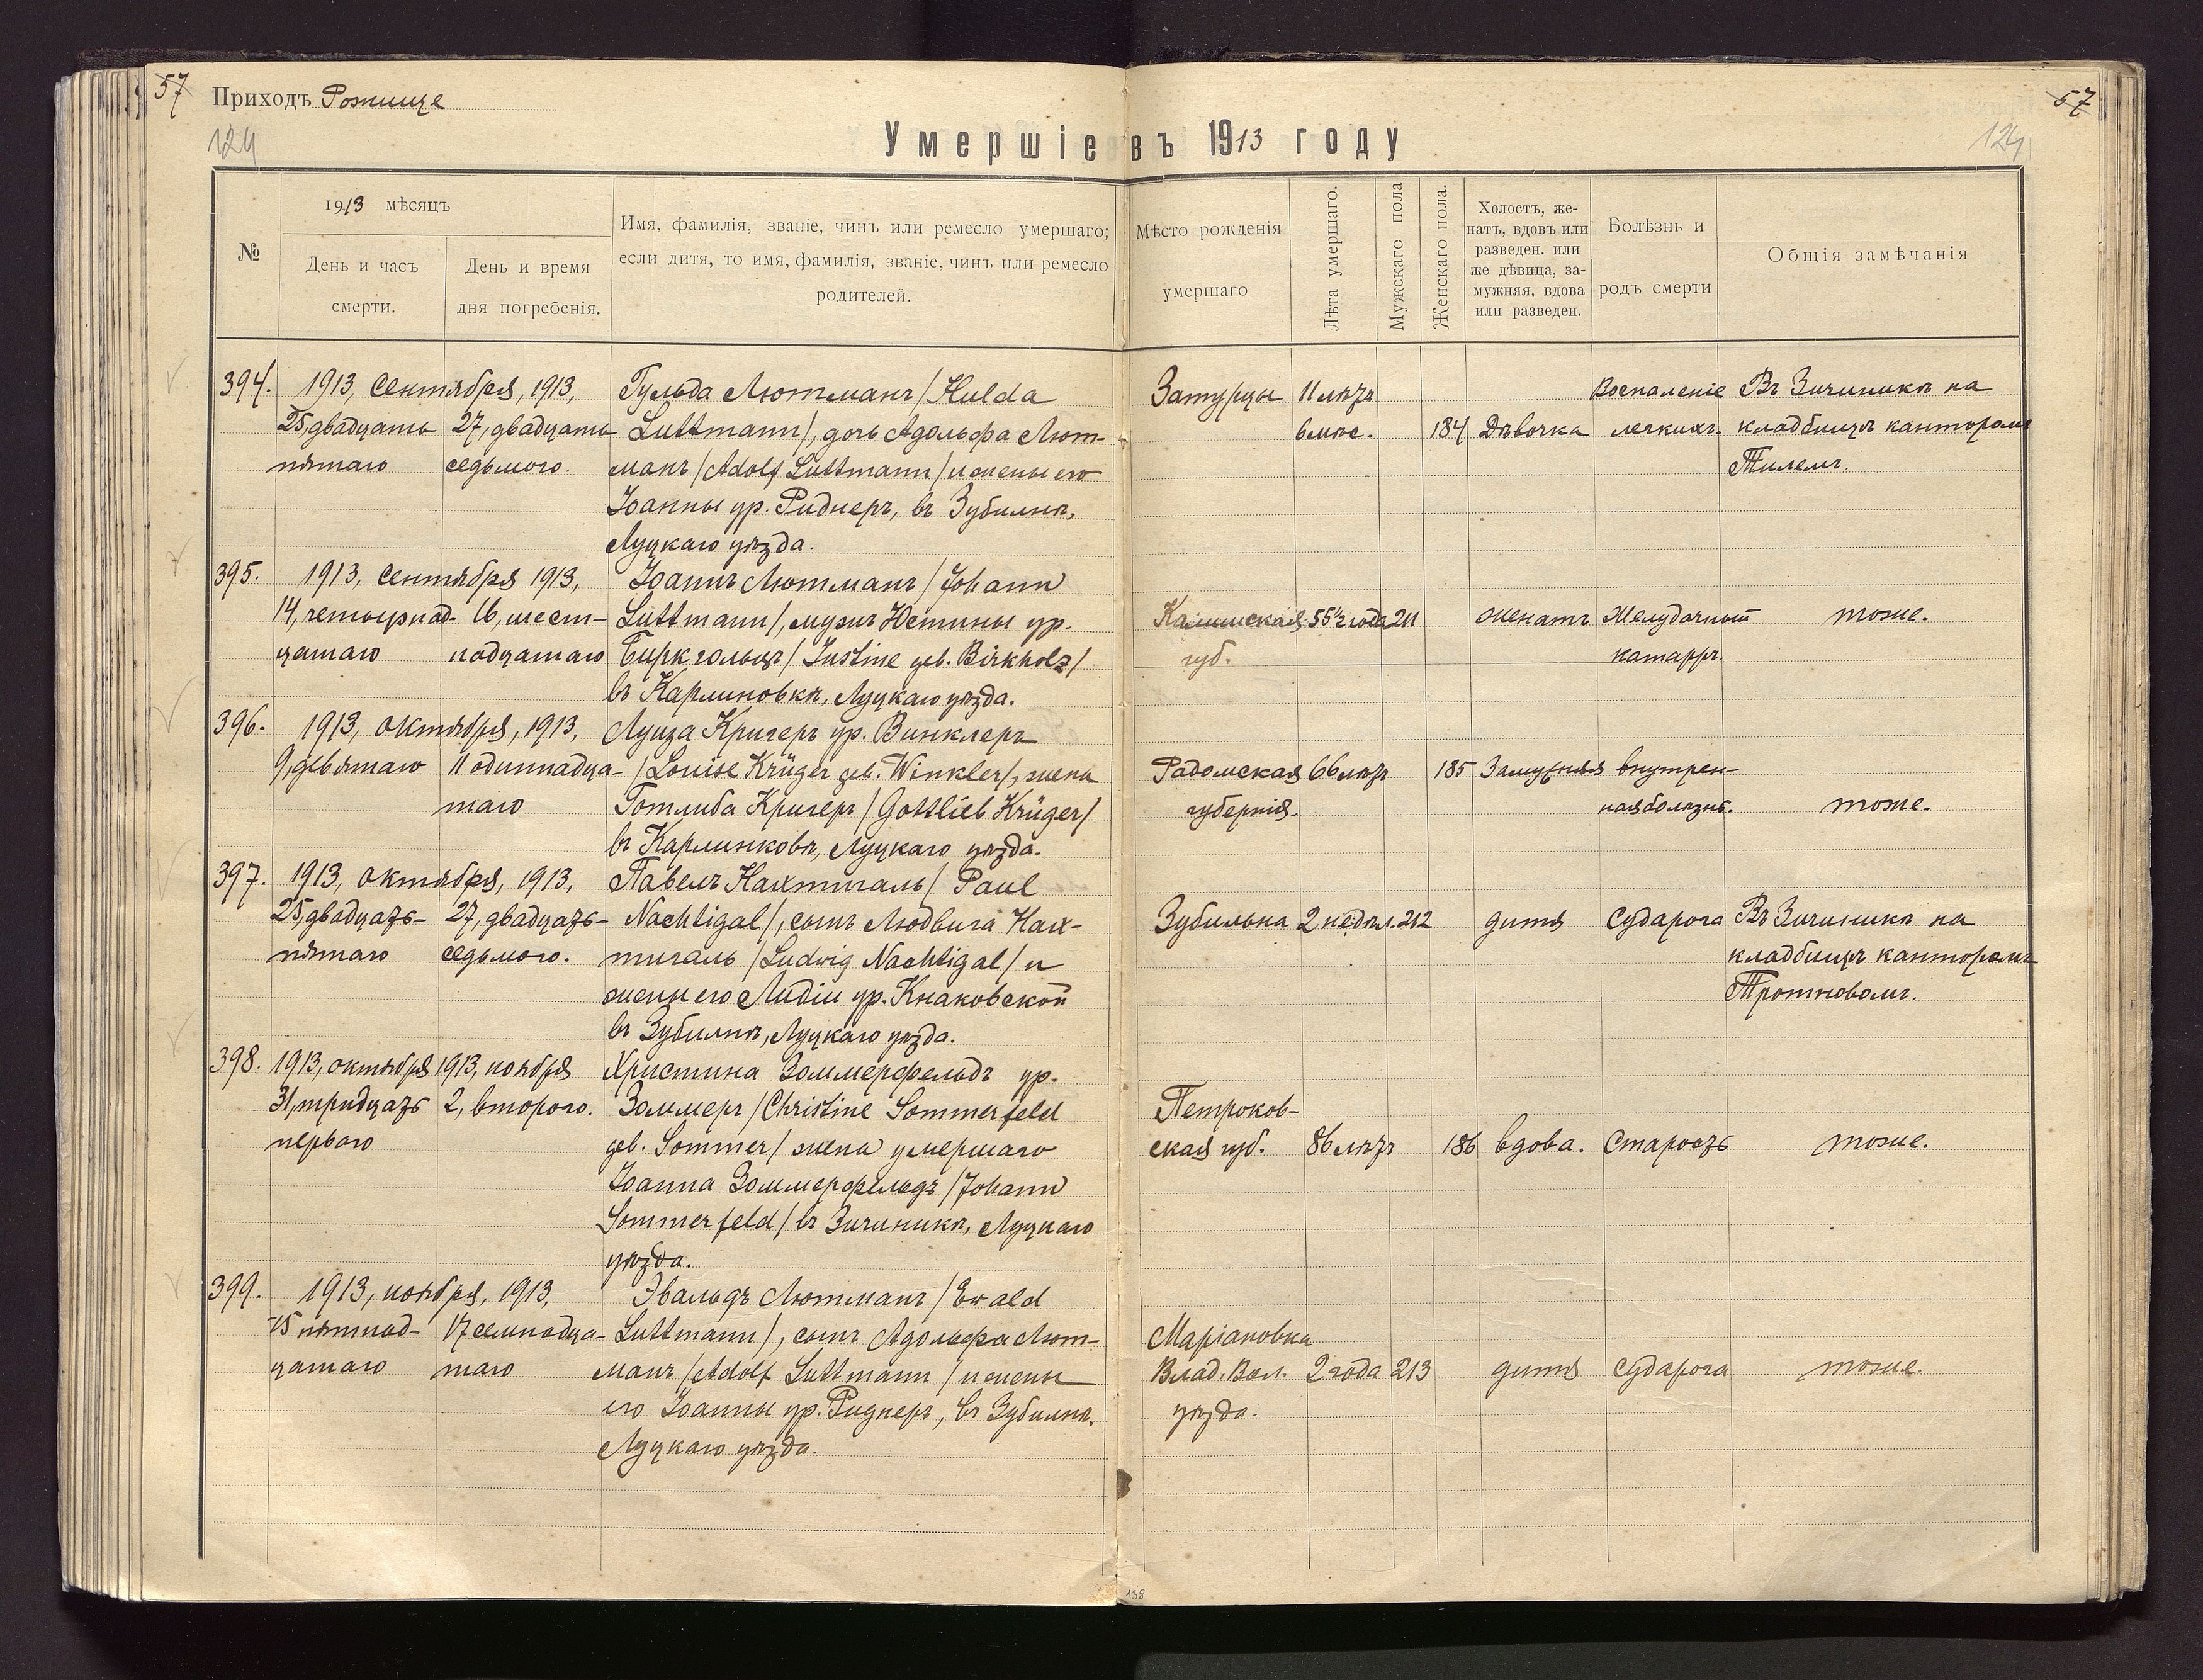 57
Приходъ Рожище
124
57
124
Умершіе въ 1913 году
№
1913 мѣсяцъ
День и часъ
смерти.
День и время
дня погребенія.
Имя, фамилія, званіе, чинъ или ремесло умершаго;
если дитя, то имя, фамилія, званіе, чинъ или ремесло
родителей.
Мѣсто рожденія
умершаго
Лѣта умершаго.
Мужскаго пола
Женскаго пола.
Холостъ, же-
натъ, вдовъ или
разведен. или
же дѣвица, за-
мужняя, вдова
или разведен.
Болѣзнь и
родъ смерти
Общія замѣчанія
394. 1913, сентября, 1913, Гульда Лютманъ /Hulda Затурцы 11 лѣтъ Воспаленіе Въ Зичиникѣ на
25, двадцать 27, двадцать Luttmann/, дочь Адольфа Лют- 6 мѣс. 184 Дѣвочка легкихъ. кладбищѣ канторомъ
пятаго седьмого. манъ /Adolf Luttmann/ и жены его Тилемъ.
Іоанны ур. Риднеръ, въ Зубилнѣ,
Луцкаго уѣзда.
395. 1913, сентября 1913, Іоаннъ Лютманъ /Johann
14, четырнад- 16, шест- Luttmann/, мужъ Юстины ур. Калишская 55½ года 211 женатъ Желудочный тоже.
цатаго надцатаго Биркгольцъ /Justine geb. Birkholz/ губ. катарръ.
въ Карлиновкѣ, Луцкаго уѣзда.
396. 1913, октября, 1913, Луиза Кригеръ ур. Винклеръ
9, девятаго 11 одиннадца- /Louise Krüger geb. Winkler/, жена Радомская 66 лѣтъ 185 Замужняя внутрен-
таго Готлиба Кригеръ /Gottlieb Krüger/ губернія. няя болѣзнь. тоже.
въ Карлинковѣ, Луцкаго уѣзда.
397. 1913, октября, 1913, Павелъ Нахтигаль / Paul
25, двадцать- 27, двадцать- Nachtigal/, сынъ Людвига Нах- Зубильна 2 недѣл. 212 дитя Судорога Въ Зичиникѣ на
пятаго седьмого. тигаль /Ludwig Nachtigal/ и кладбищѣ канторомъ
жены его Лидіи ур. Кнаковской Тротновомъ.
въ Зубилнѣ, Луцкаго уѣзда.
398. 1913, октября 1913, ноября Христина Зоммерфельдъ ур.
31, тридцать 2, второго. Зоммеръ /Christine Sommerfeld Петроков-
перваго geb. Sommer/ жена умершаго ская губ. 86 лѣтъ 186 вдова. Старость тоже.
Іоанна Зоммерфельдъ /Johann
Sommerfeld/ въ Зичиникѣ, Луцкаго
уѣзда.
399. 1913, ноября, 1913, Эвальдъ Лютманъ /Ewald
15 пятнад- 17 семнадца- Luttmann/, сынъ Адольфа Лют- Маріановка
цатаго таго манъ /Adolf Luttmann/ и жены Влад. Вол. 2 года 213 дитя Судорога тоже.
его Іоанны ур. Риднеръ, въ Зубилнѣ, уѣзда.
Луцкаго уѣзда.
138